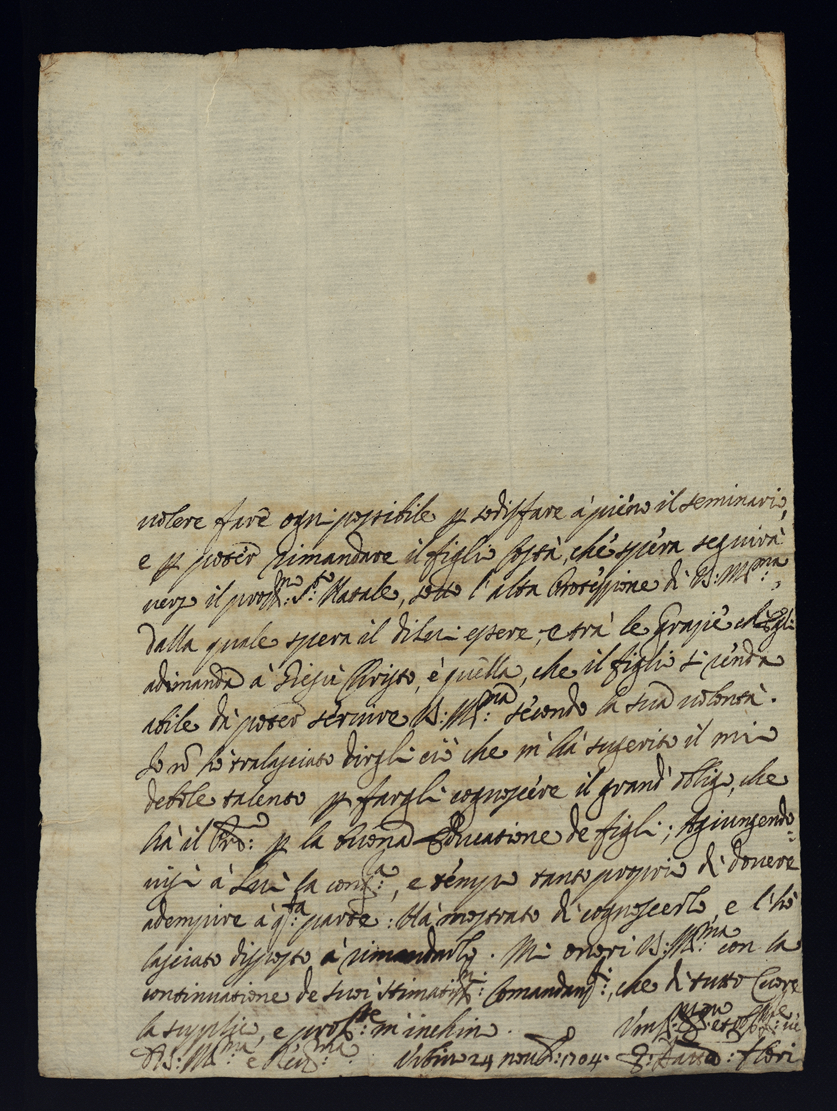 volere fare ogni possibile p sodisfare à pieno il seminario,
e p poter rimandare il figlio costà, che spera seguirà
verso il pross:mo S:to Natale, sotto l'alta Protezzione di V: Ill:ma,
dalla quale spera il di lui essere, e trà le Grazie ch'Egli
adimanda à Giesù Christo, è quella, che il figlio si renda
abile di poter servire V: Ill:ma secondo la sua volontà.
Io nõ hò tralasciato dirgli ciò che m'hà sugerito il mio
debole talento p fargli cognoscere il grand'obligo, che
hà il Pre: p la buona Educatione de figli; Agiungendo=
visi à Lui la , e tempo tanto proprio di dovere
adempire à q:ta parte: Hà mostrato di cognoscerlo, e l'hò
lasciato disposto à rimandarlo. Mi onori V: Ill:ma con la
continuatione de suoi stimatiss:mi Comandam:ti, che di tutto Cuore
la supplico, e prof:te m'inchino. Vm:mo et Obl:mo
D V: Ill:ma e Rev:ma Urbino 24 novb: 1704.